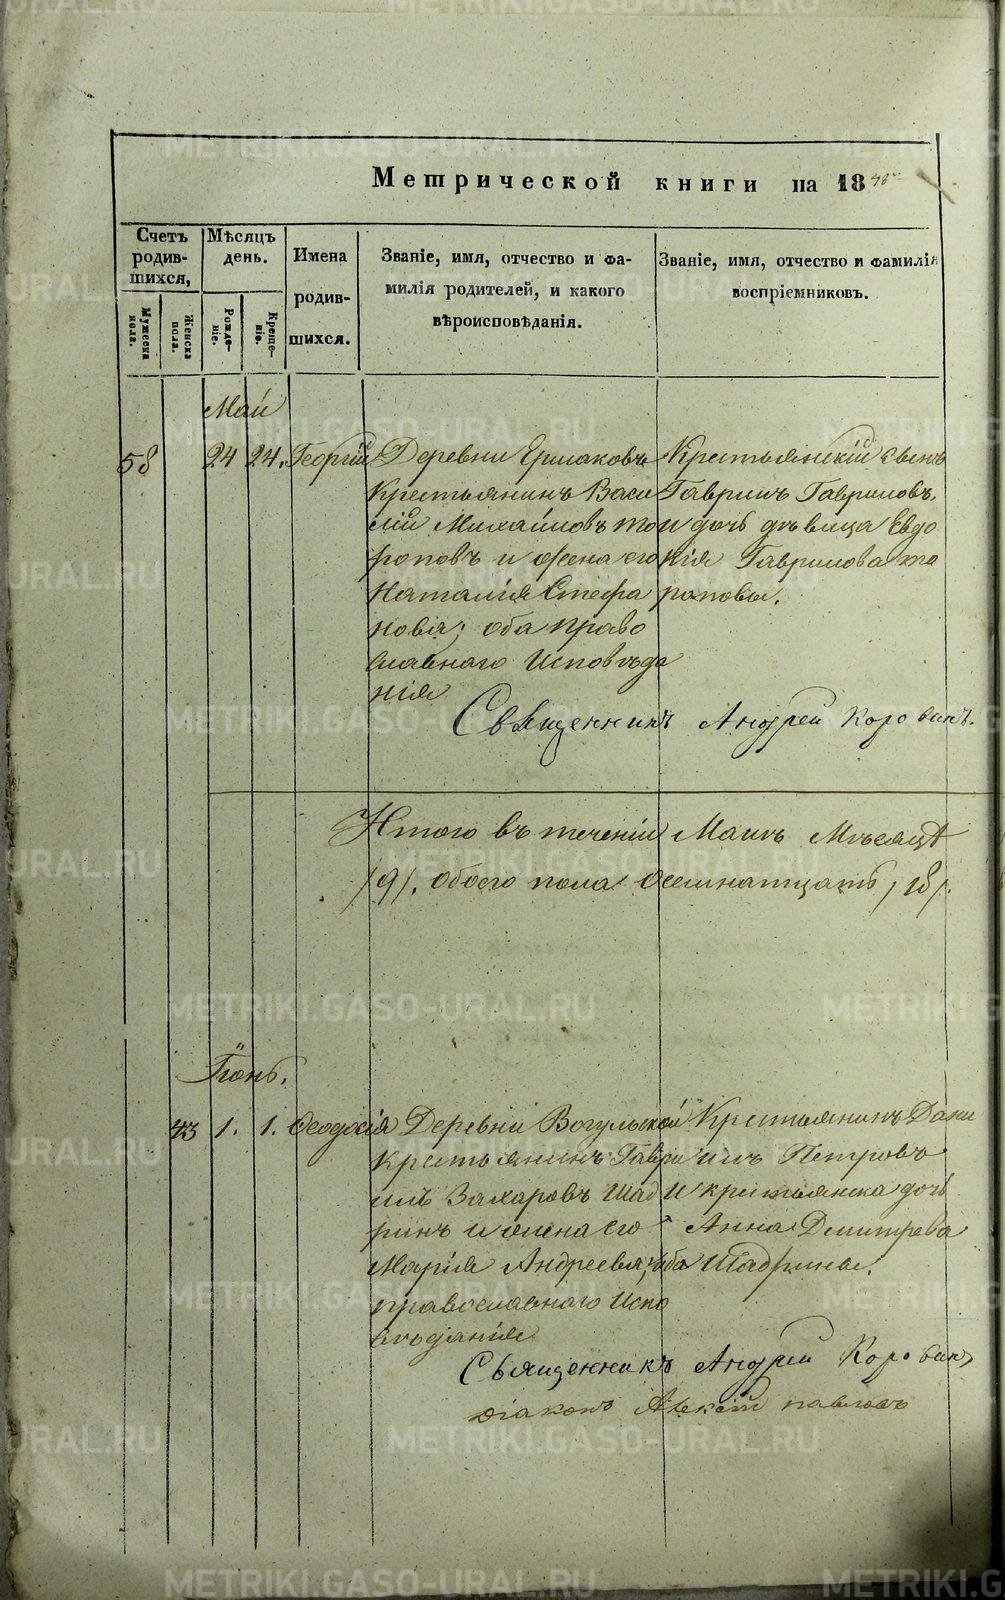 Метрической книги на 1848
Счетъ родившихся,
Мужеска пола.
Женска пола.
Мѣсяцъ день.
Рожденіе.
Крещеніе.
Имена родившихся.
Званіе, имя, отчество и фамилія родителей, и какого вѣроисповѣданія.
Званіе, имя, отчество и фамилія воспріемниковъ.
Май
58 24 24. Георгій
Деревни Ермаковъ
Крестьянинъ Васи
лій Михайловъ То
роповъ и жена его
Наталія Стефа
новія; оба право
славнаго исповѣда
нія
Крестьянскій сынъ
Гаврилъ Гавриловъ,
и дочь дѣвица Евдо
кія Гаврилова То
роповы.
Священникъ Андрей Коровинъ.
Итого въ теченіи Маія Мѣсяца
/9/. обоего пола осемнатцать /18/.
Іюнь.
43 1. 1. Ѳеодосія
Деревни Вогульской
Крестьянинъ Гаври
илъ Захаровъ Шад
ринъ и жена его
Марія Андреевія; оба
православнаго испо
вѣданія
Крестьянинъ Дани
илъ Петровъ
и крестьянска дочь
Анна Дмитрева
Шадрины.
Священникъ Андрей Коровинъ
Діаконъ Алексій Павловъ
METRIKI.GASO-URAL.RU